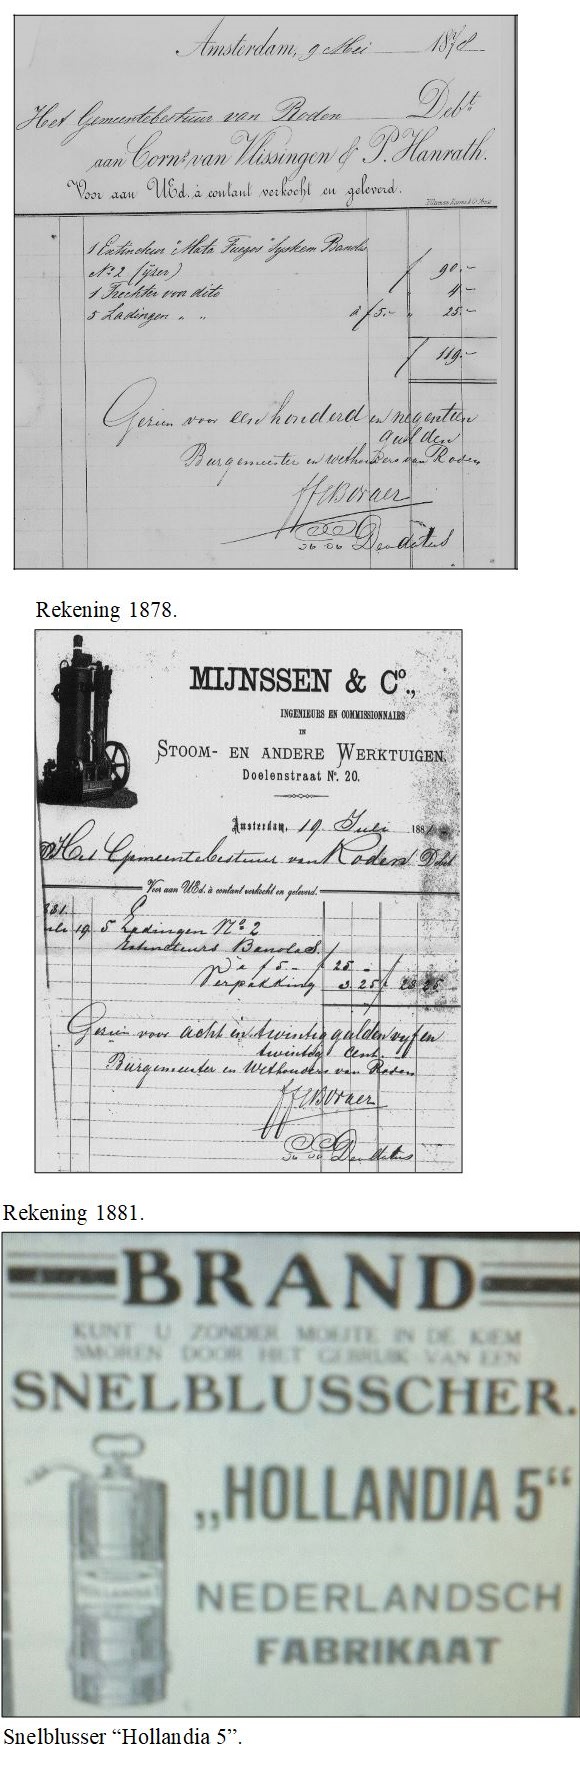 Amsterdam, 9 Mei 1878
Het Gemeentebestuur van Roden Debt.
aan Corns. van Vlissingen & P. Hanrath.
Voor aan UEd. à contant verkocht en geleverd.
1 Extincteur "Mata Fuegos" Systeem Banolas
No 2 (ijzer) f 90.-
1 Trechter voor dito " 4-
5 Ladingen " " à f 5.- " 25-
f 119.-
Gezien voor een honderd en negentien
gulden
Burgemeester en wethouders van Roden
Rekening 1878.
MIJNSSEN & Co.,
INGENIEURS EN COMMISSIONNAIRS
IN
STOOM- EN ANDERE WERKTUIGEN.
Doelenstraat No. 20.
Amsterdam, 19 Juli 188
Het Gemeentebestuur van Roden Debet
Voor aan UEd. à contant verkocht en geleverd.
19 5 Ladingen No 2
Extincteurs Banolas.
à f 5.- f 25.-
Verpakking 3.25 f 28 25
Gezien voor acht en twintig gulden vijf en
twintig cent.
Burgemeester en Wethouders van Roden
Rekening 1881.
BRAND
KUNT U ZONDER MOEITE IN DE KIEM
SMOREN DOOR HET GEBRUIK VAN EEN
SNELBLUSSCHER.
„HOLLANDIA 5“
HOLLANDIA
NEDERLANDSCH
FABRIKAAT
Snelblusser “Hollandia 5”.